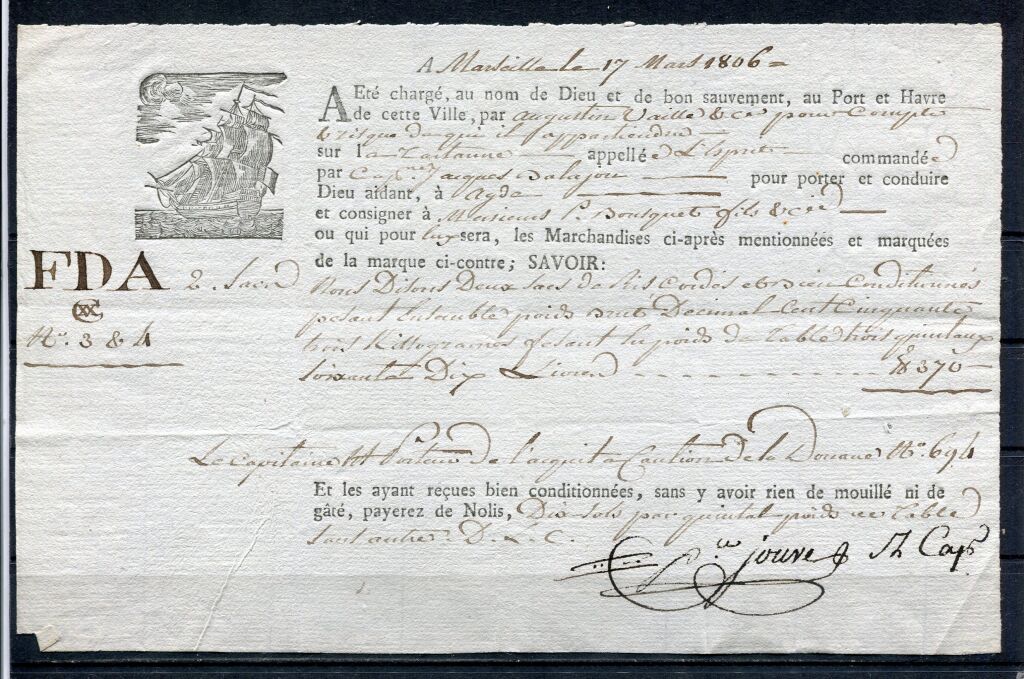 A Marseille le 17 Mars 1806
A Eté chargé, au nom de Dieu et de bon sauvement, au Port et Havre
de cette Ville, par augustin Vaille & Ce pour Compte
& risque de qui il appartiendra
sur la Tartanne appellée L'Esprit commandée
par Capne Jacques pour porter et conduire
Dieu aidant, à Agde
et consigner à Messieurs P. Bousquet fils & Cie
ou qui pour lux sera, les Marchandises ci-après mentionnées et marquées
de la marque ci-contre; SAVOIR:
FDA
2. Sacs
No. 3 & 4
Nous Disons Deux sacs de Ris Cordés et Bien Conditionnés
pesant Ensemble poids Brut Decimal Cent Cinquante
trois Killogrames fesant du poids de Table trois quintaux
soixante Dix Livres 370
Le Capitaine est Porteur de l'acquit a Caution de la Douane No. 694
Et les ayant reçues bien conditionnées, sans y avoir rien de mouillé ni de
gâté, payerez de Nolis, Dix sols par quintal poids de Table
sans autre. D. L. C.
jouve Capne